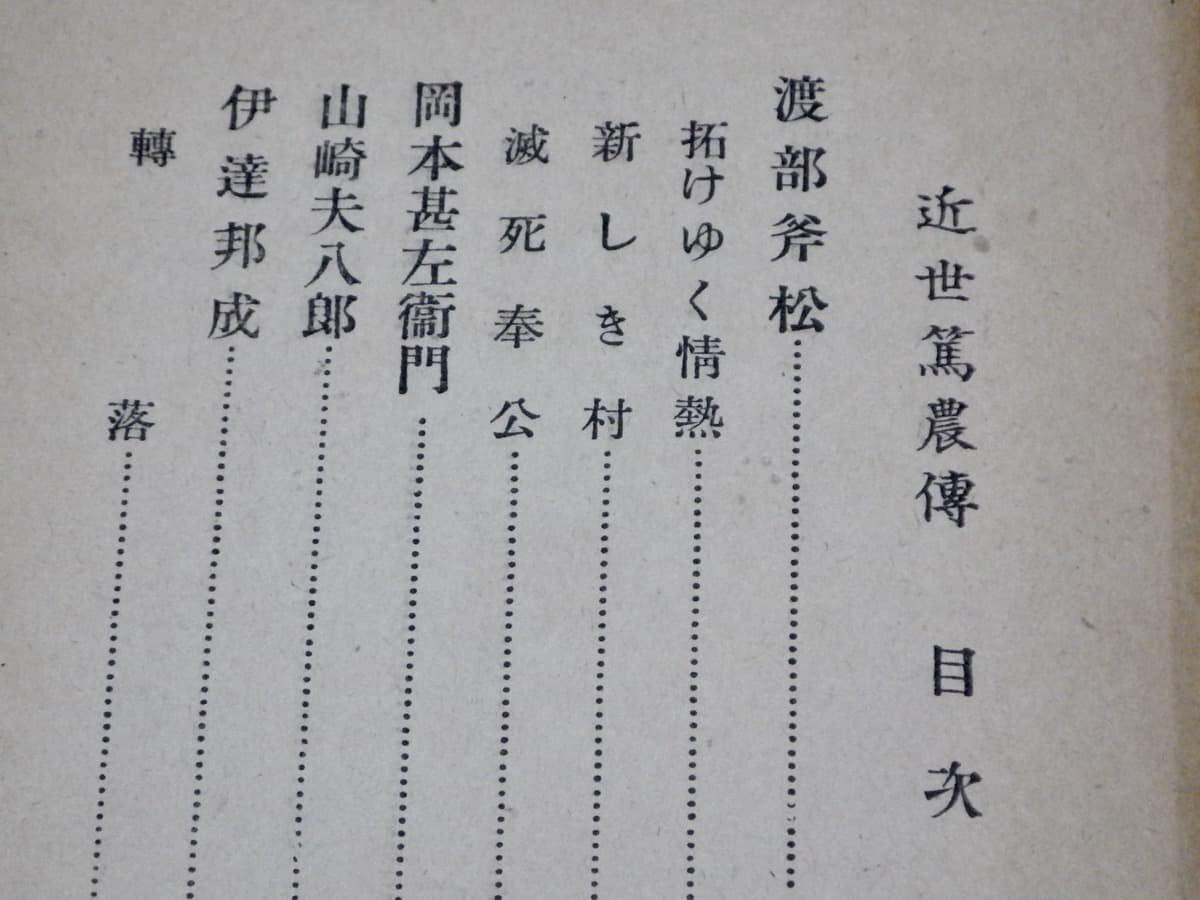 近世篤農傳 目次
渡部斧松
拓けゆく情熱
新しき村
滅死奉公
岡本甚左衞門
山崎夫八郎
伊達邦成
轉落